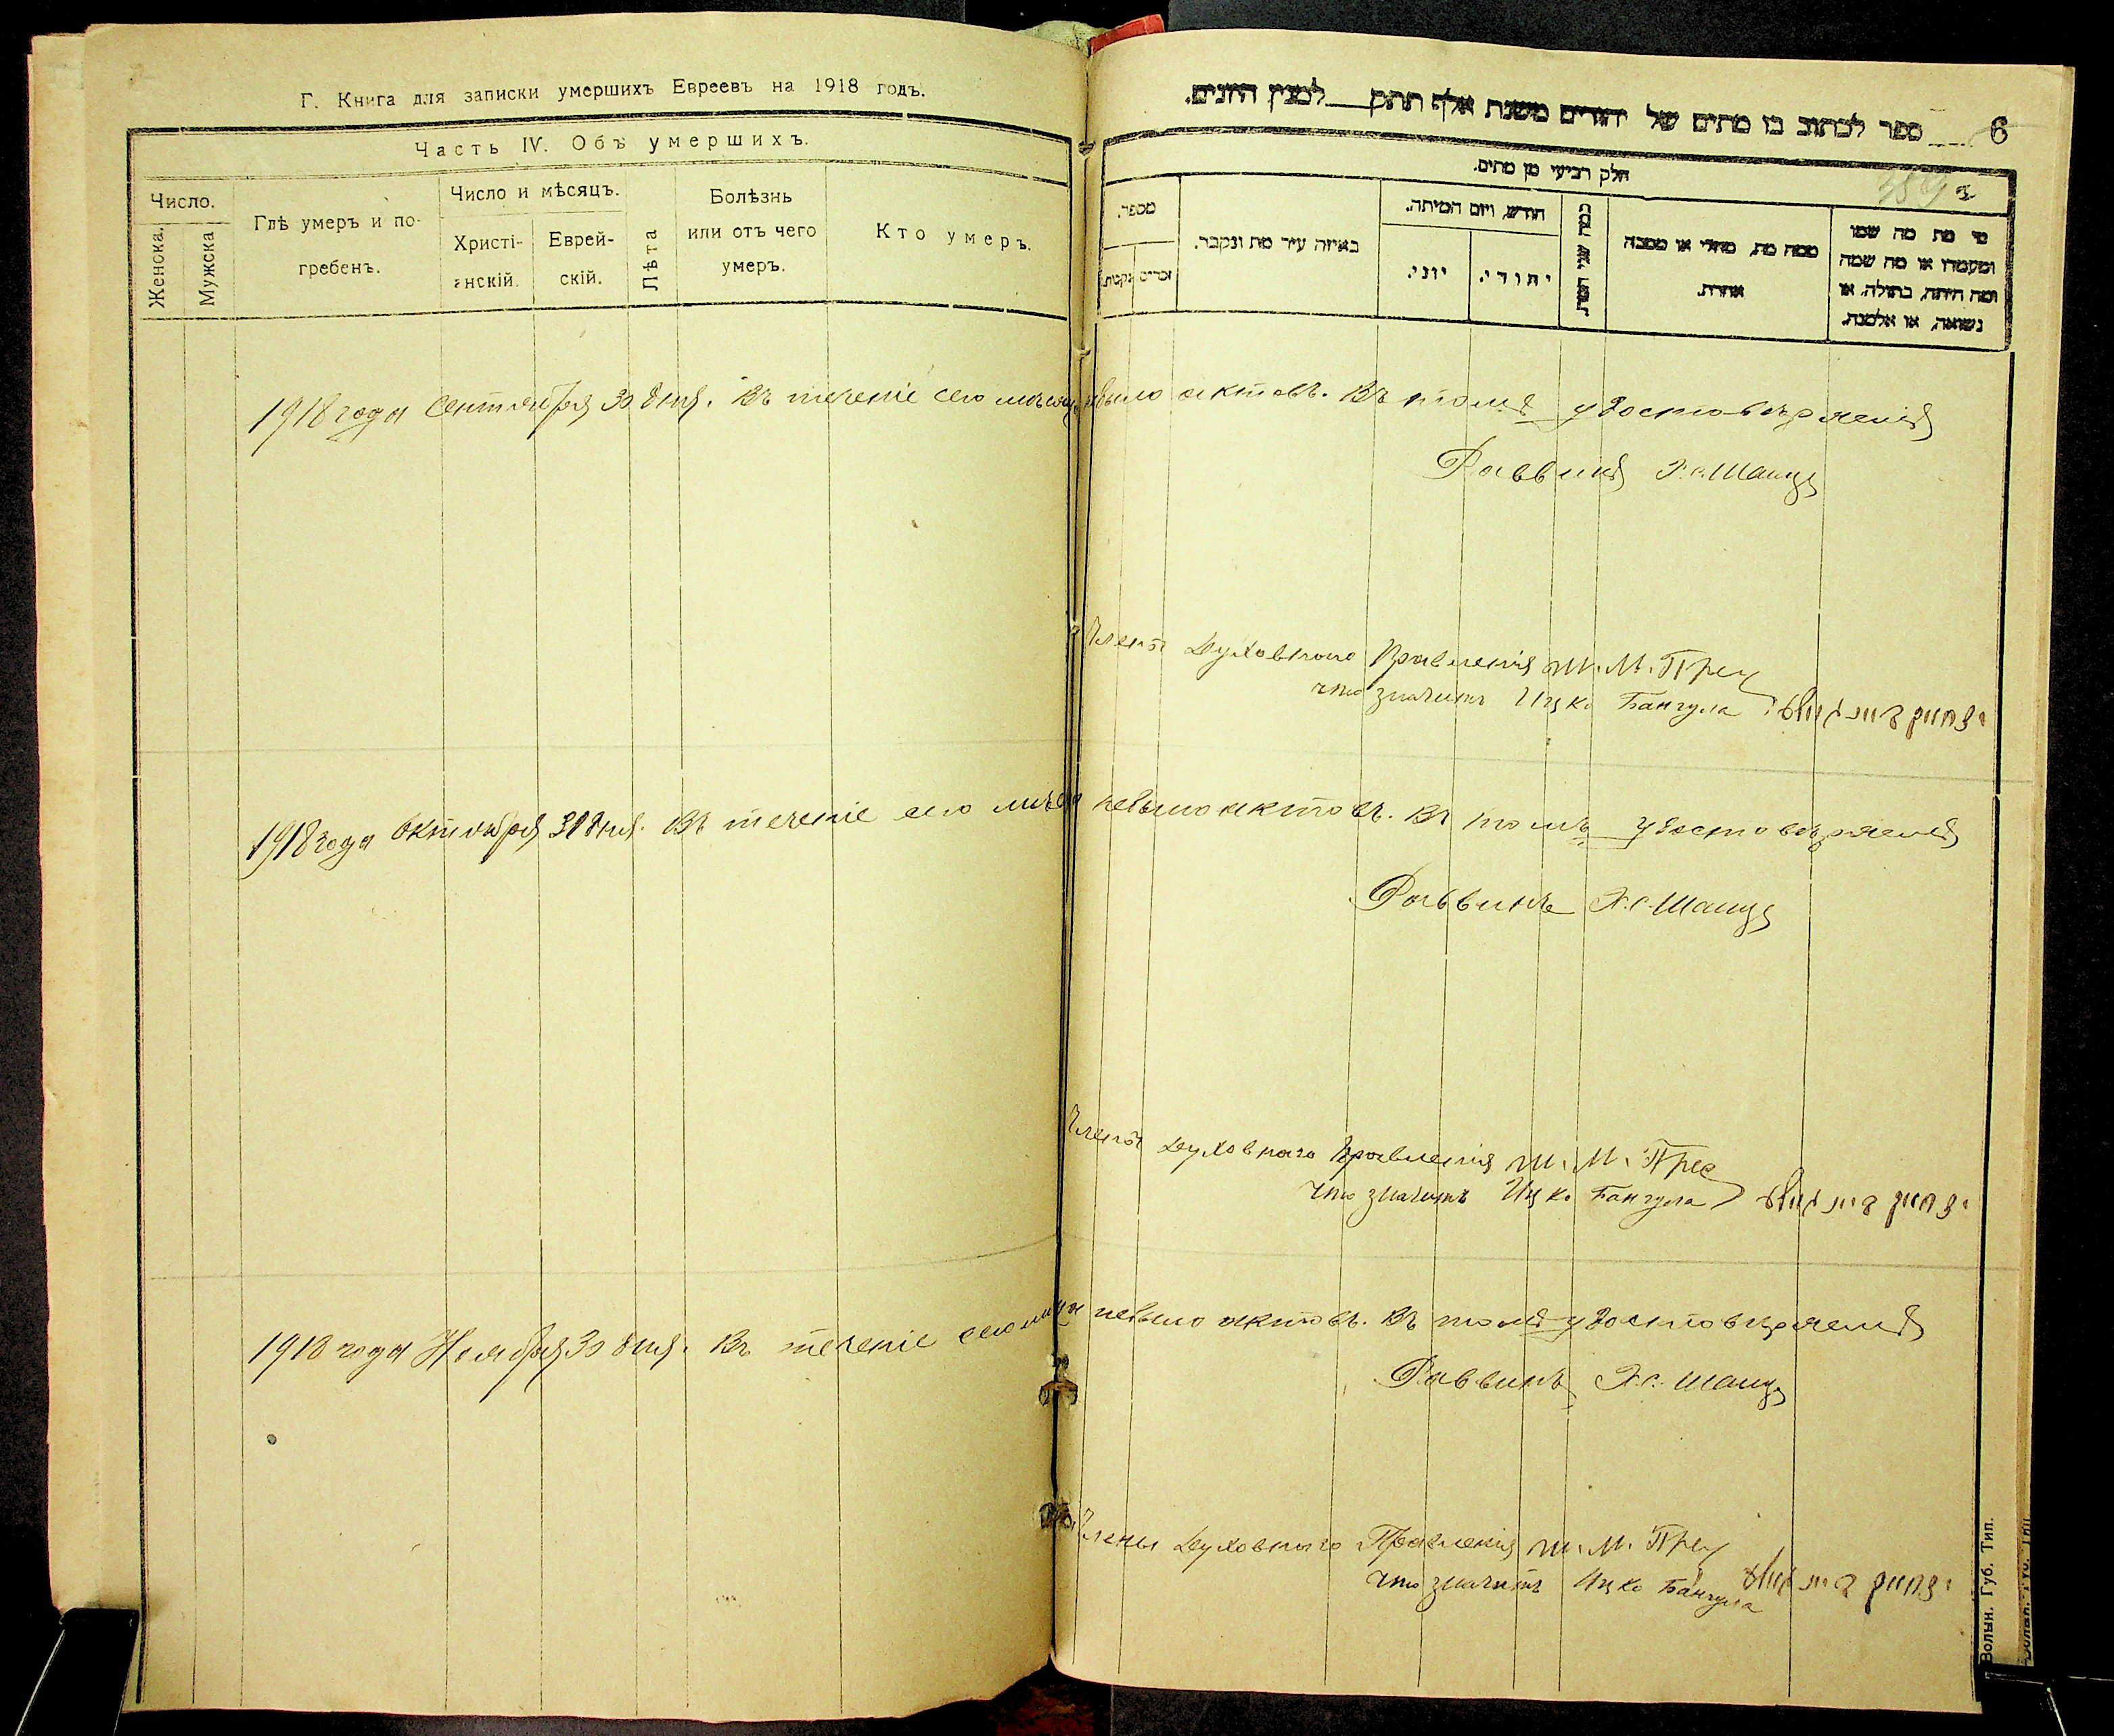 Г. Книга для записки умершихъ Евреевъ на 1918 годъ.
Часть IV. Объ умершихъ.
Число.
Женска.
Мужска
Гдѣ умеръ и по-
гребенъ.
Число и мѣсяцъ.
Христі-
анскій.
Еврей-
скій.
Лѣта
Болѣзнь
или отъ чего
умеръ.
Кто умеръ.
6
ספר לכתוב בו מתים של יהודים משנת אלף תתק למנין היונים.
חלק רביעי מן מתים.
מספר.
זכרים
נקבות
באיזה עיר מת ונקבר.
חודש, ויום המיתה.
יוני.
יהודי.
כמה שני
ממה מת, מחלי או מסבה
אחרת.
מי מת מה שמו
ומעמדו או מה שמה
ומה היתה, בתולה, או
נשואה, או אלמנה.
1918 года Сентября 30 дня. Въ теченіе сего мѣсяца небыло актовъ. Въ томъ удостовѣряемъ
Раввинъ
Члены Духовнаго Правленія Ш. М. Прес
что значитъ Ицко Бангула
1918 года Октября 31 дня. Въ теченіе сего мѣсяца небыло актовъ. Въ томъ удостовѣряемъ
Раввинъ
Члены Духовнаго Правленія Ш. М. Прес
что значитъ Ицко Бангула
1918 года Ноября 30 дня. Въ теченіе сего м-ца небыло актовъ. Въ томъ удостовѣряемъ
Раввинъ
Члены Духовнаго Правленія Ш. М. Прес
что значитъ Ицко Бангула
Волын. Губ. Тип.